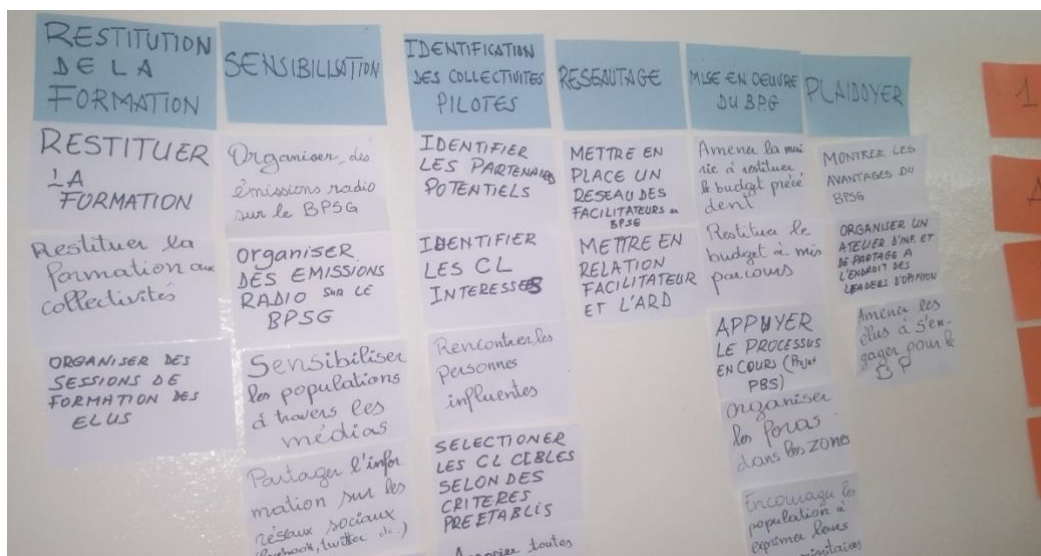 RESTITUTION
DE LA
FORMATION
RESTITUER
LA
FORMATION
Restituer la
formation aux
collectivités
ORGANISER DES
SESSIONS DE
FORMATION DES
ELUS
SENSIBILISATION
Organiser des
émissions radio
sur le BPSG
ORGANISER
DES EMISSIONS
RADIO SUR LE
BPSG
Sensibiliser
les populations
à travers les
médias
Partager l'infor
mation sur les
réseaux sociaux
(facebook, twitter etc.)
IDENTIFICATION
DES COLLECTIVITES
PILOTES
IDENTIFIER
LES PARTENAIRES
POTENTIELS
IDENTIFIER
LES CL
INTERESSES
Rencontrer les
personnes
influentes
SELECTIONER
LES CL CIBLES
SELON DES
CRITERES
PREETABLIS
toutes
RESEAUTAGE
METTRE EN
PLACE UN
RESEAU DES
FACILITATEURS en
BPSG
METTRE EN
RELATION
FACILITATEUR
ET L'ARD
MISE EN OEUVRE
DU BPG
Amener la mai
rie à restituer
le budget précé
dent
Restituer le
budget à mis
parcours
APPUYER
LE PROCESSUS
EN COURS (Projet
PBS)
Organiser
les foras
dans les zones
Encourager la
population à
exprimer leurs
PLAIDOYER
MONTRER LES
AVANTAGES DU
BPSG
ORGANISER UN
ATELIER D'INF. ET
DE PARTAGE A
L'ENDROIT DES
LEADERS D'OPINION
Amener les
élus à s'en-
gager pour le
BP
1
A